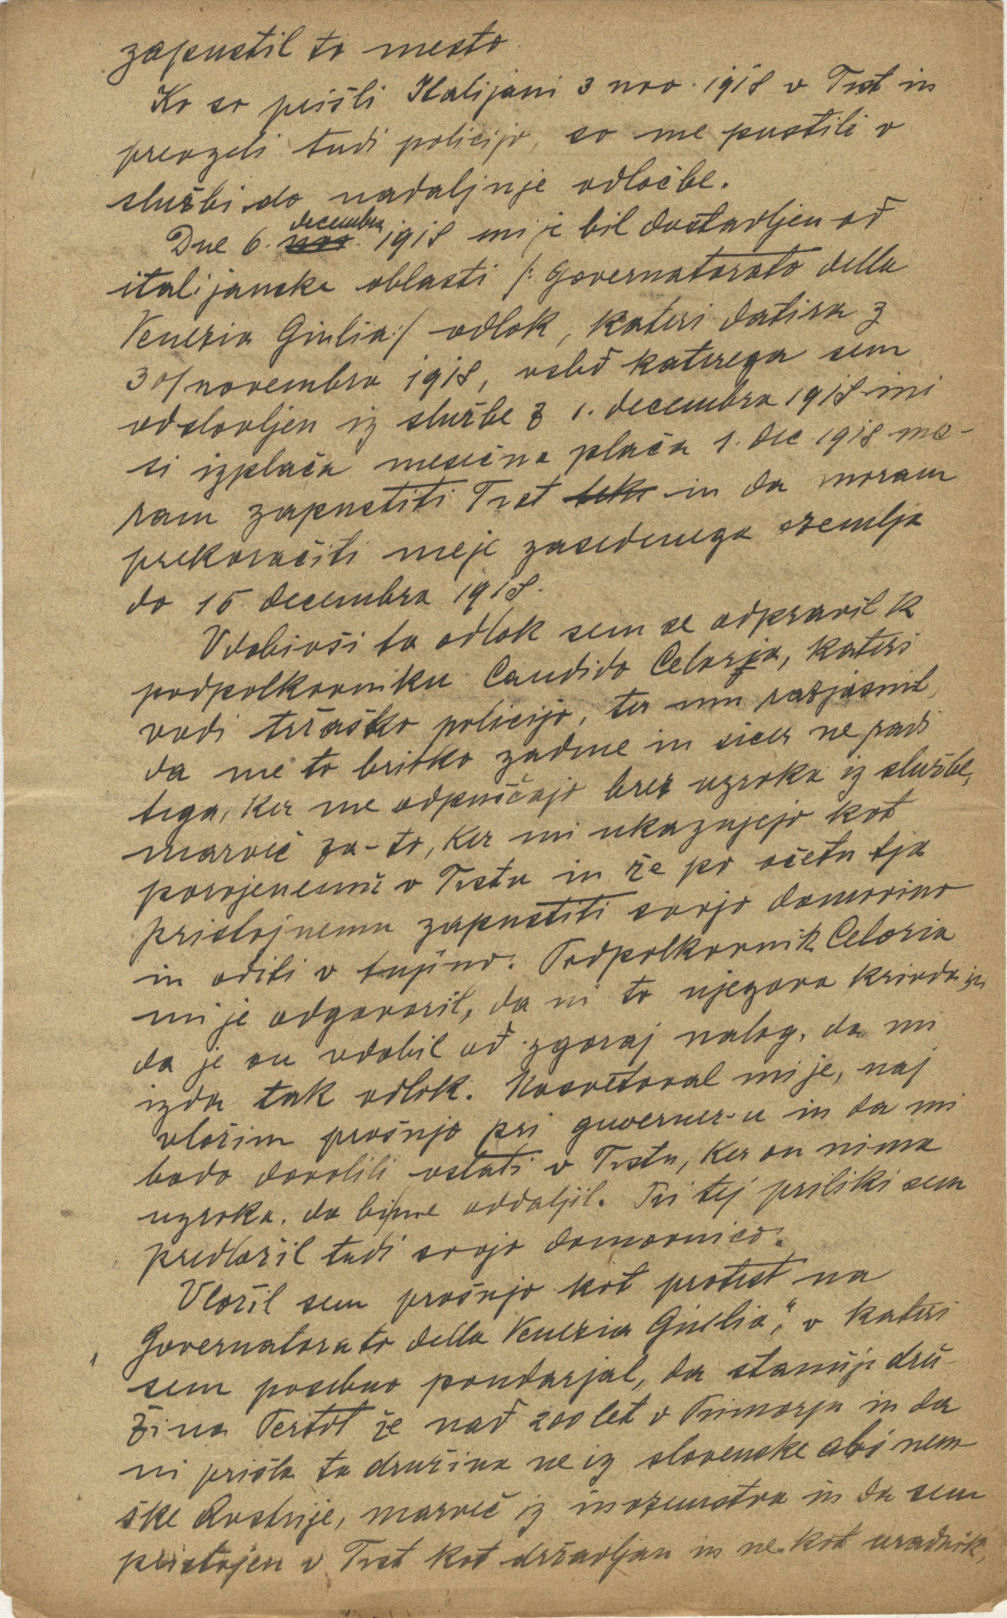 zapustil to mesto.
Ko so prišli Italijani 3 nov. 1918 v Trst in
prevzeli tudi policijo, so me pustili v
službi do nadaljnje odločbe.
Dne 6. nov. decembra 1918 mi je bil dostavljen od
italijanske oblasti /: Governatorato della
Venezia Giulia:/ odlok, kateri datira z
30/novembra 1918, vsled katerega sem
odslovljen iz službe z 1. decembra 1918 mi
si izplača mesečna plača 1. dec 1918 mo-
ram zapustiti Trst in da moram
prekoračiti meje zasedenega ozemlja
do 15 decembra 1918.
Vdobivši ta odlok sem se odpravil k
podpolkovniku Candido Celorja, kateri
vodi tržaško policijo, ter mu razjasnil,
da me to britko zadene in sicer ne radi
tega, ker me odpuščajo brez uzroka iz službe,
marveč za-to, ker mi ukazujejo kot
porojenemu v Trstu in že po očetu tja
pristojnemu zapustiti svojo domovino
in oditi v tujino. Podpolkovnik Celoria
mi je odgovoril, da ni to njegova krivda in
da je on vdobil od zgoraj nalog, da mi
izda tak odlok. Nasvetoval mi je, naj
vložim prošnjo pri guverner-u in da mi
bodo dovolili ostati v Trstu, ker on nima
uzroka, da bi me oddaljil. Pri tej priliki sem
predložil tudi svojo domovnico.
Vložil sem prošnjo kot protest na
"Governatorato della Venezia Giulia", v kateri
sem posebno poudarjal, da stanuje dru-
žina Pertot že nad 200 let v Primorju in da
ni prišla ta družina ne iz slovenske ali nem-
ške Avstrije, marveč iz inozemstva in da sem
pristojen v Trst kot državljan in ne kot uradnik,